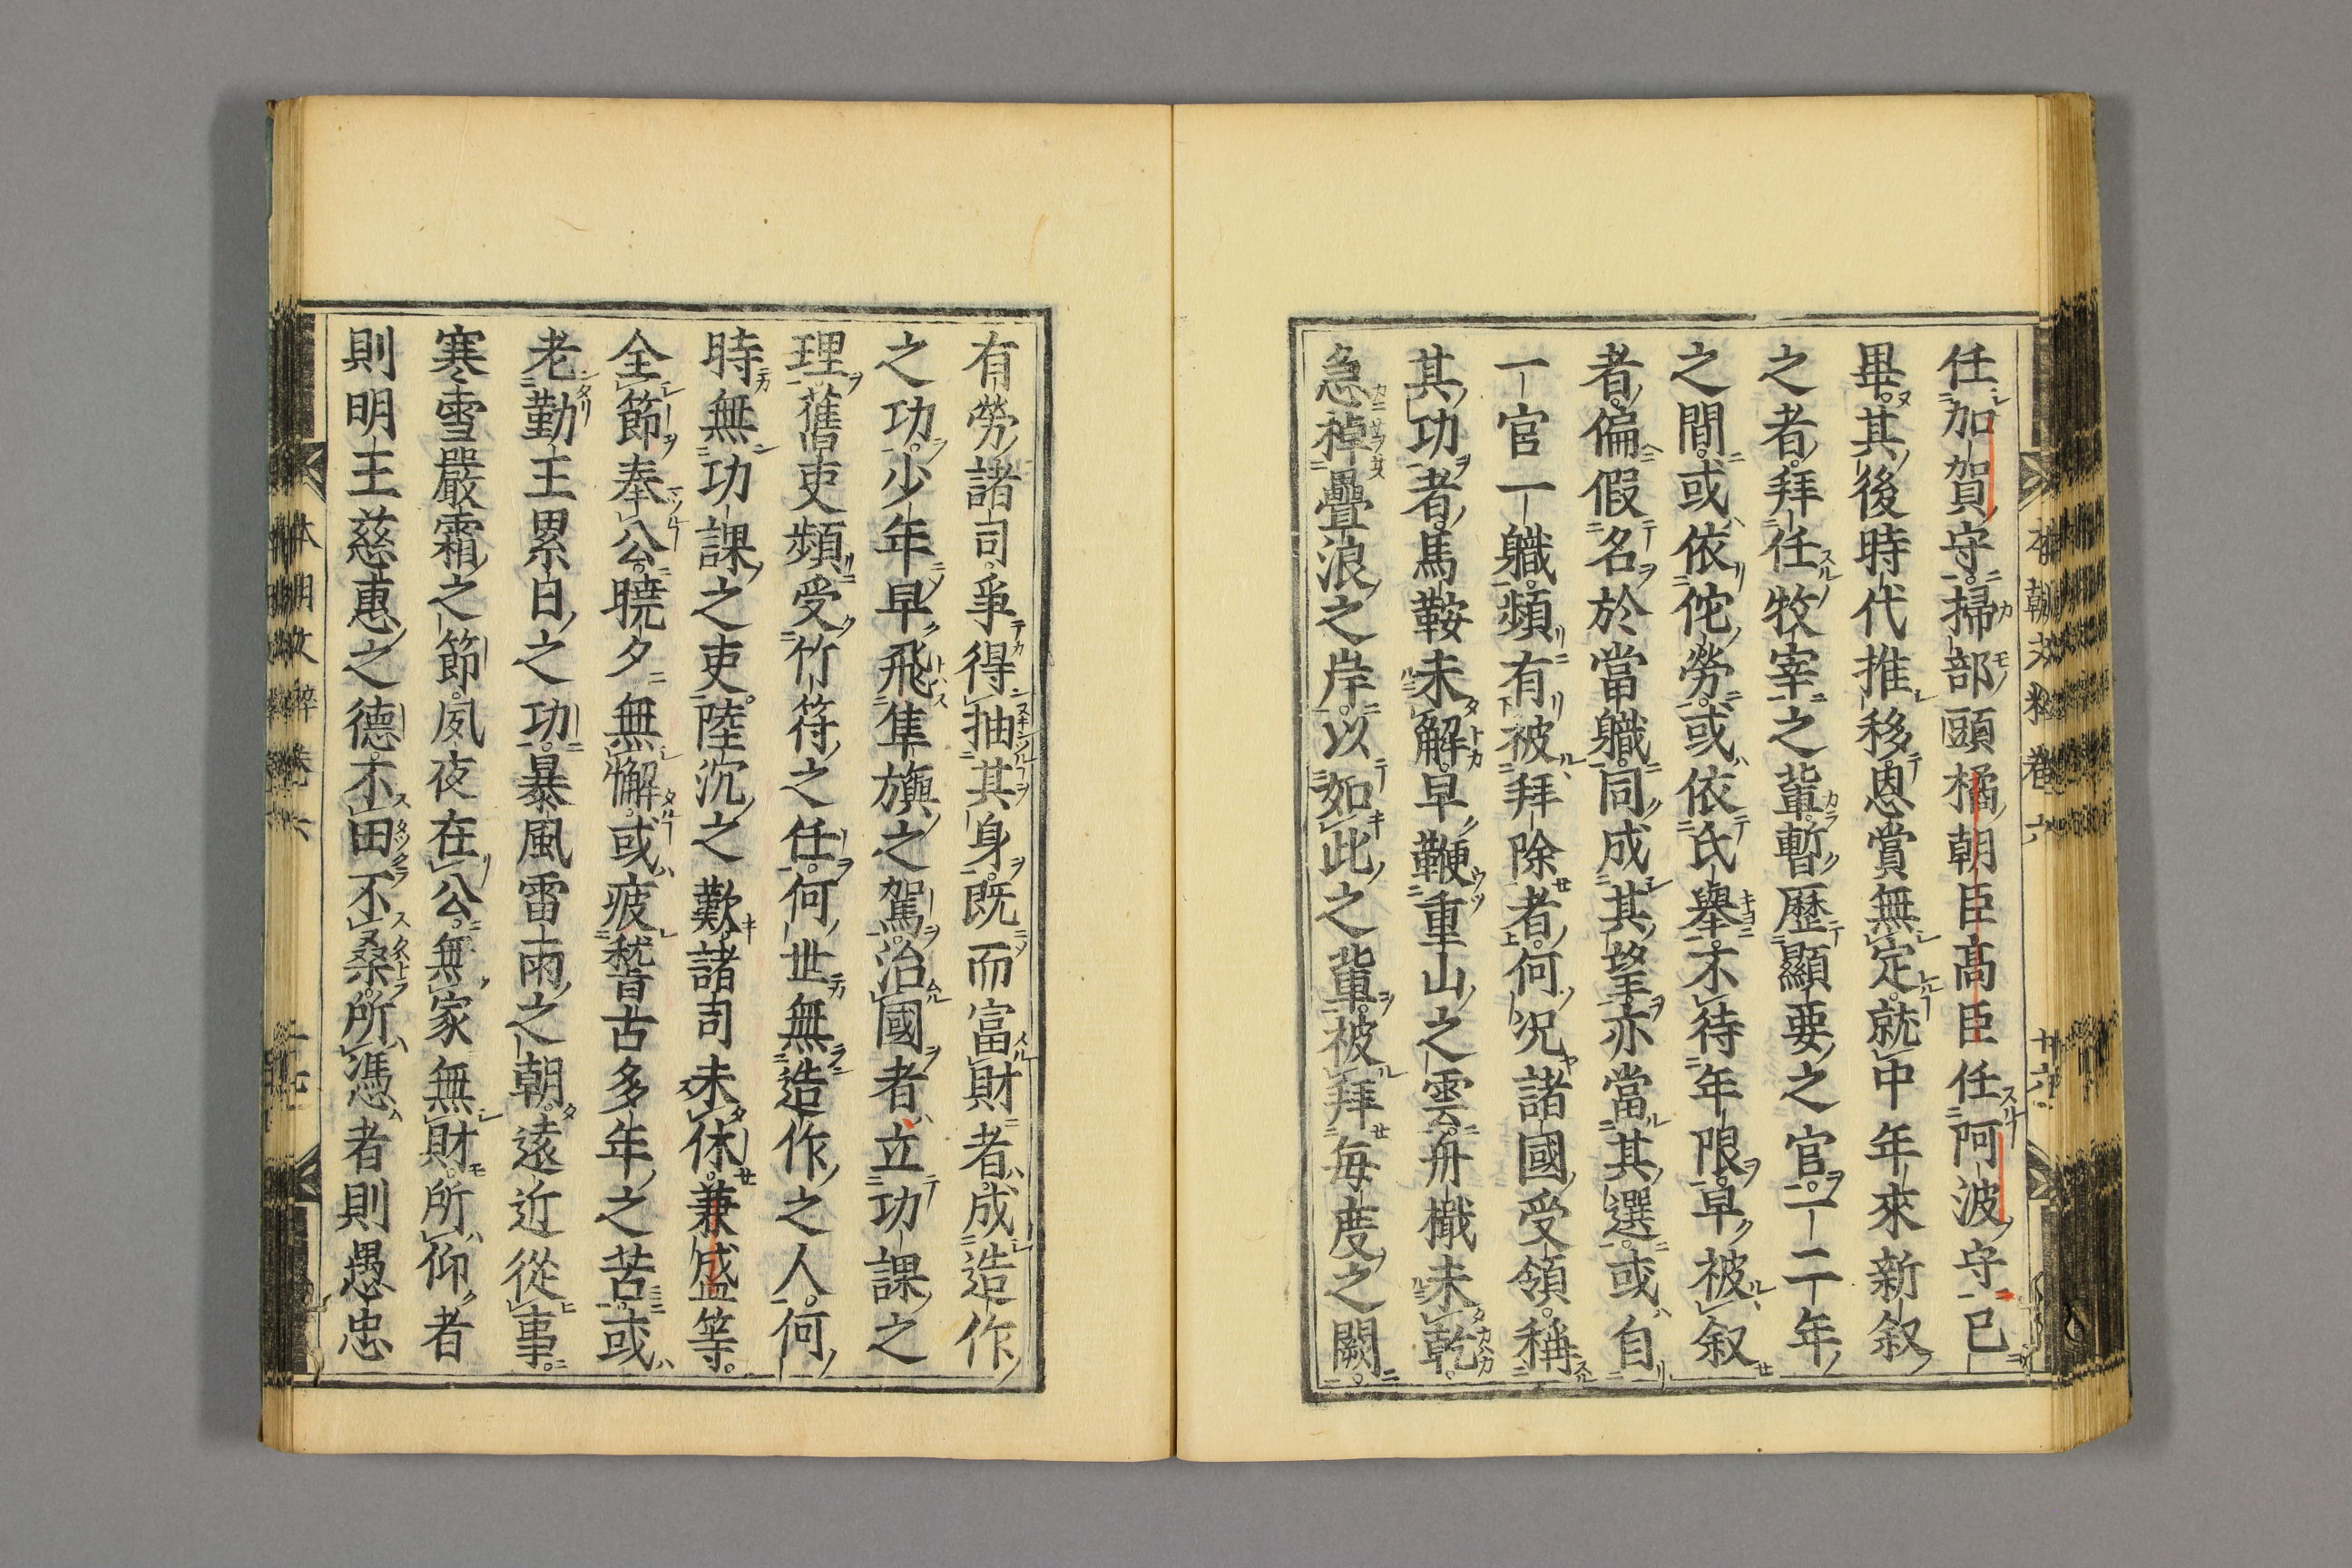 任加賀守。掃部頭橘朝臣高臣任阿波守已
畢。其後時代推移。恩賞無定。就中年來新叙
之者。拜任牧宰之輩。暫歴顯要之官。一二年
之間。或依佗勞。或依氏舉。不待年限。早被叙
者。偏假名於當職。同成其望。亦當其選。或自
一官一職。頻有被拜除者。何況諸國受領。稱
其功者。馬鞍未解。早鞭重山之雲。舟檝未乾。
急棹疊浪之岸。以如此之輩。被拜每度之闕。
本朝文粹卷六
廿六
有勞諸司。爭得抽其身。既而富財者。成造作
之功。少年早飛隼旟之駕。治國者。立功課之
理。舊吏頻受竹符之任。何世無造作之人。何
時無功課之吏。陸沉之歎。諸司未休。兼盛等。
全節奉公。曉夕無懈。或疲稽古多年之苦。或
老勤王累白之功。暴風雷雨之朝。遠近從事。
寒雪嚴霜之節。夙夜在公。無家無財。所仰者
則明王慈惠之德。不田不桑。所憑者則愚忠
本朝文粹卷六